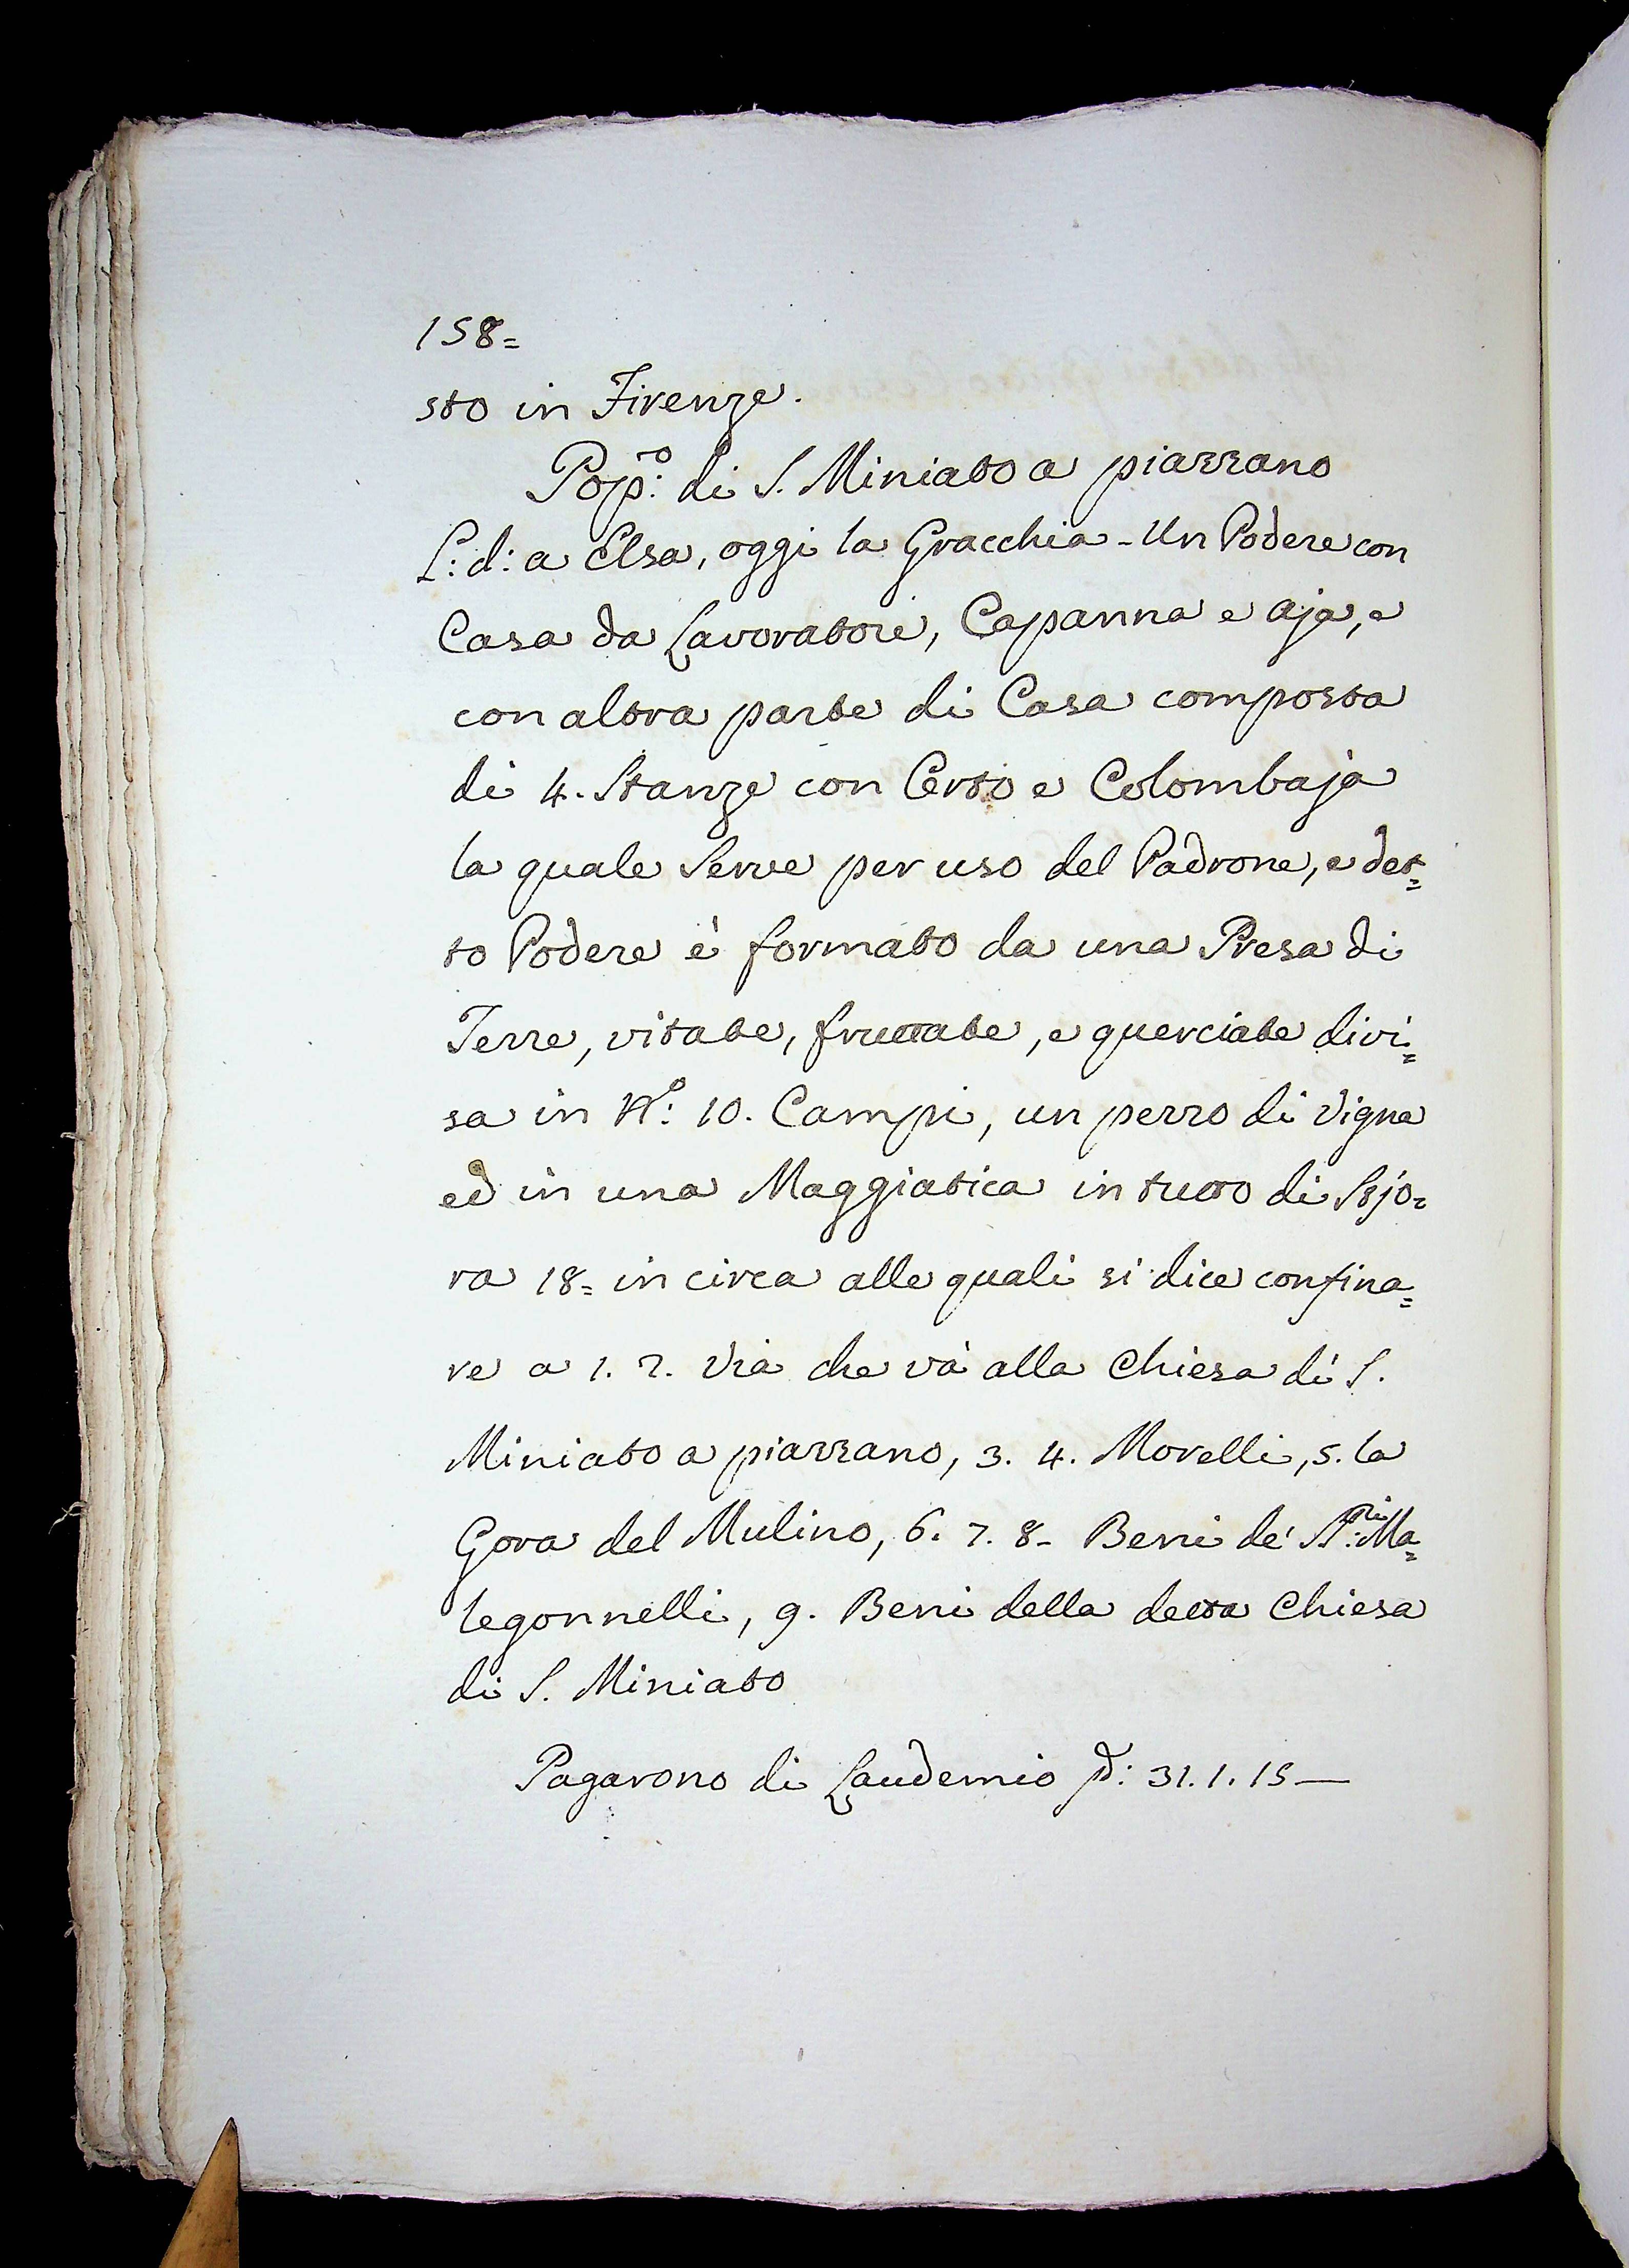 158=
sto in Firenze.
Pop:º di S. Miniato a piazzano
L: d: a Elsa, oggi la Gracchia - Un Podere con
Casa da Lavoratore, Capanna e aja, e
con altra parte di Casa composta
di 4. Stanze con Corto e Colombaja
la quale Serve per uso del Padrone, e det=
to Podere è formato da una Presa di
Terre, vitate, fruttate, e querciate divi=
sa in Nº: 10. Campi, un pezzo di Vigna
ed in una Maggiatica in tutto di Stjo=
ra 18= in circa alle quali si dice confina=
re a 1. 2. Via che và alla Chiesa di S.
Miniato a piazzano, 3. 4. Morelli, 5. la
Gora del Mulino, 6. 7. 8- Beni de' SS:ri Ma=
legonnelli, 9. Beni della detta Chiesa
di S. Miniato
Pagarono di Laudemio 31. 1. 15 —